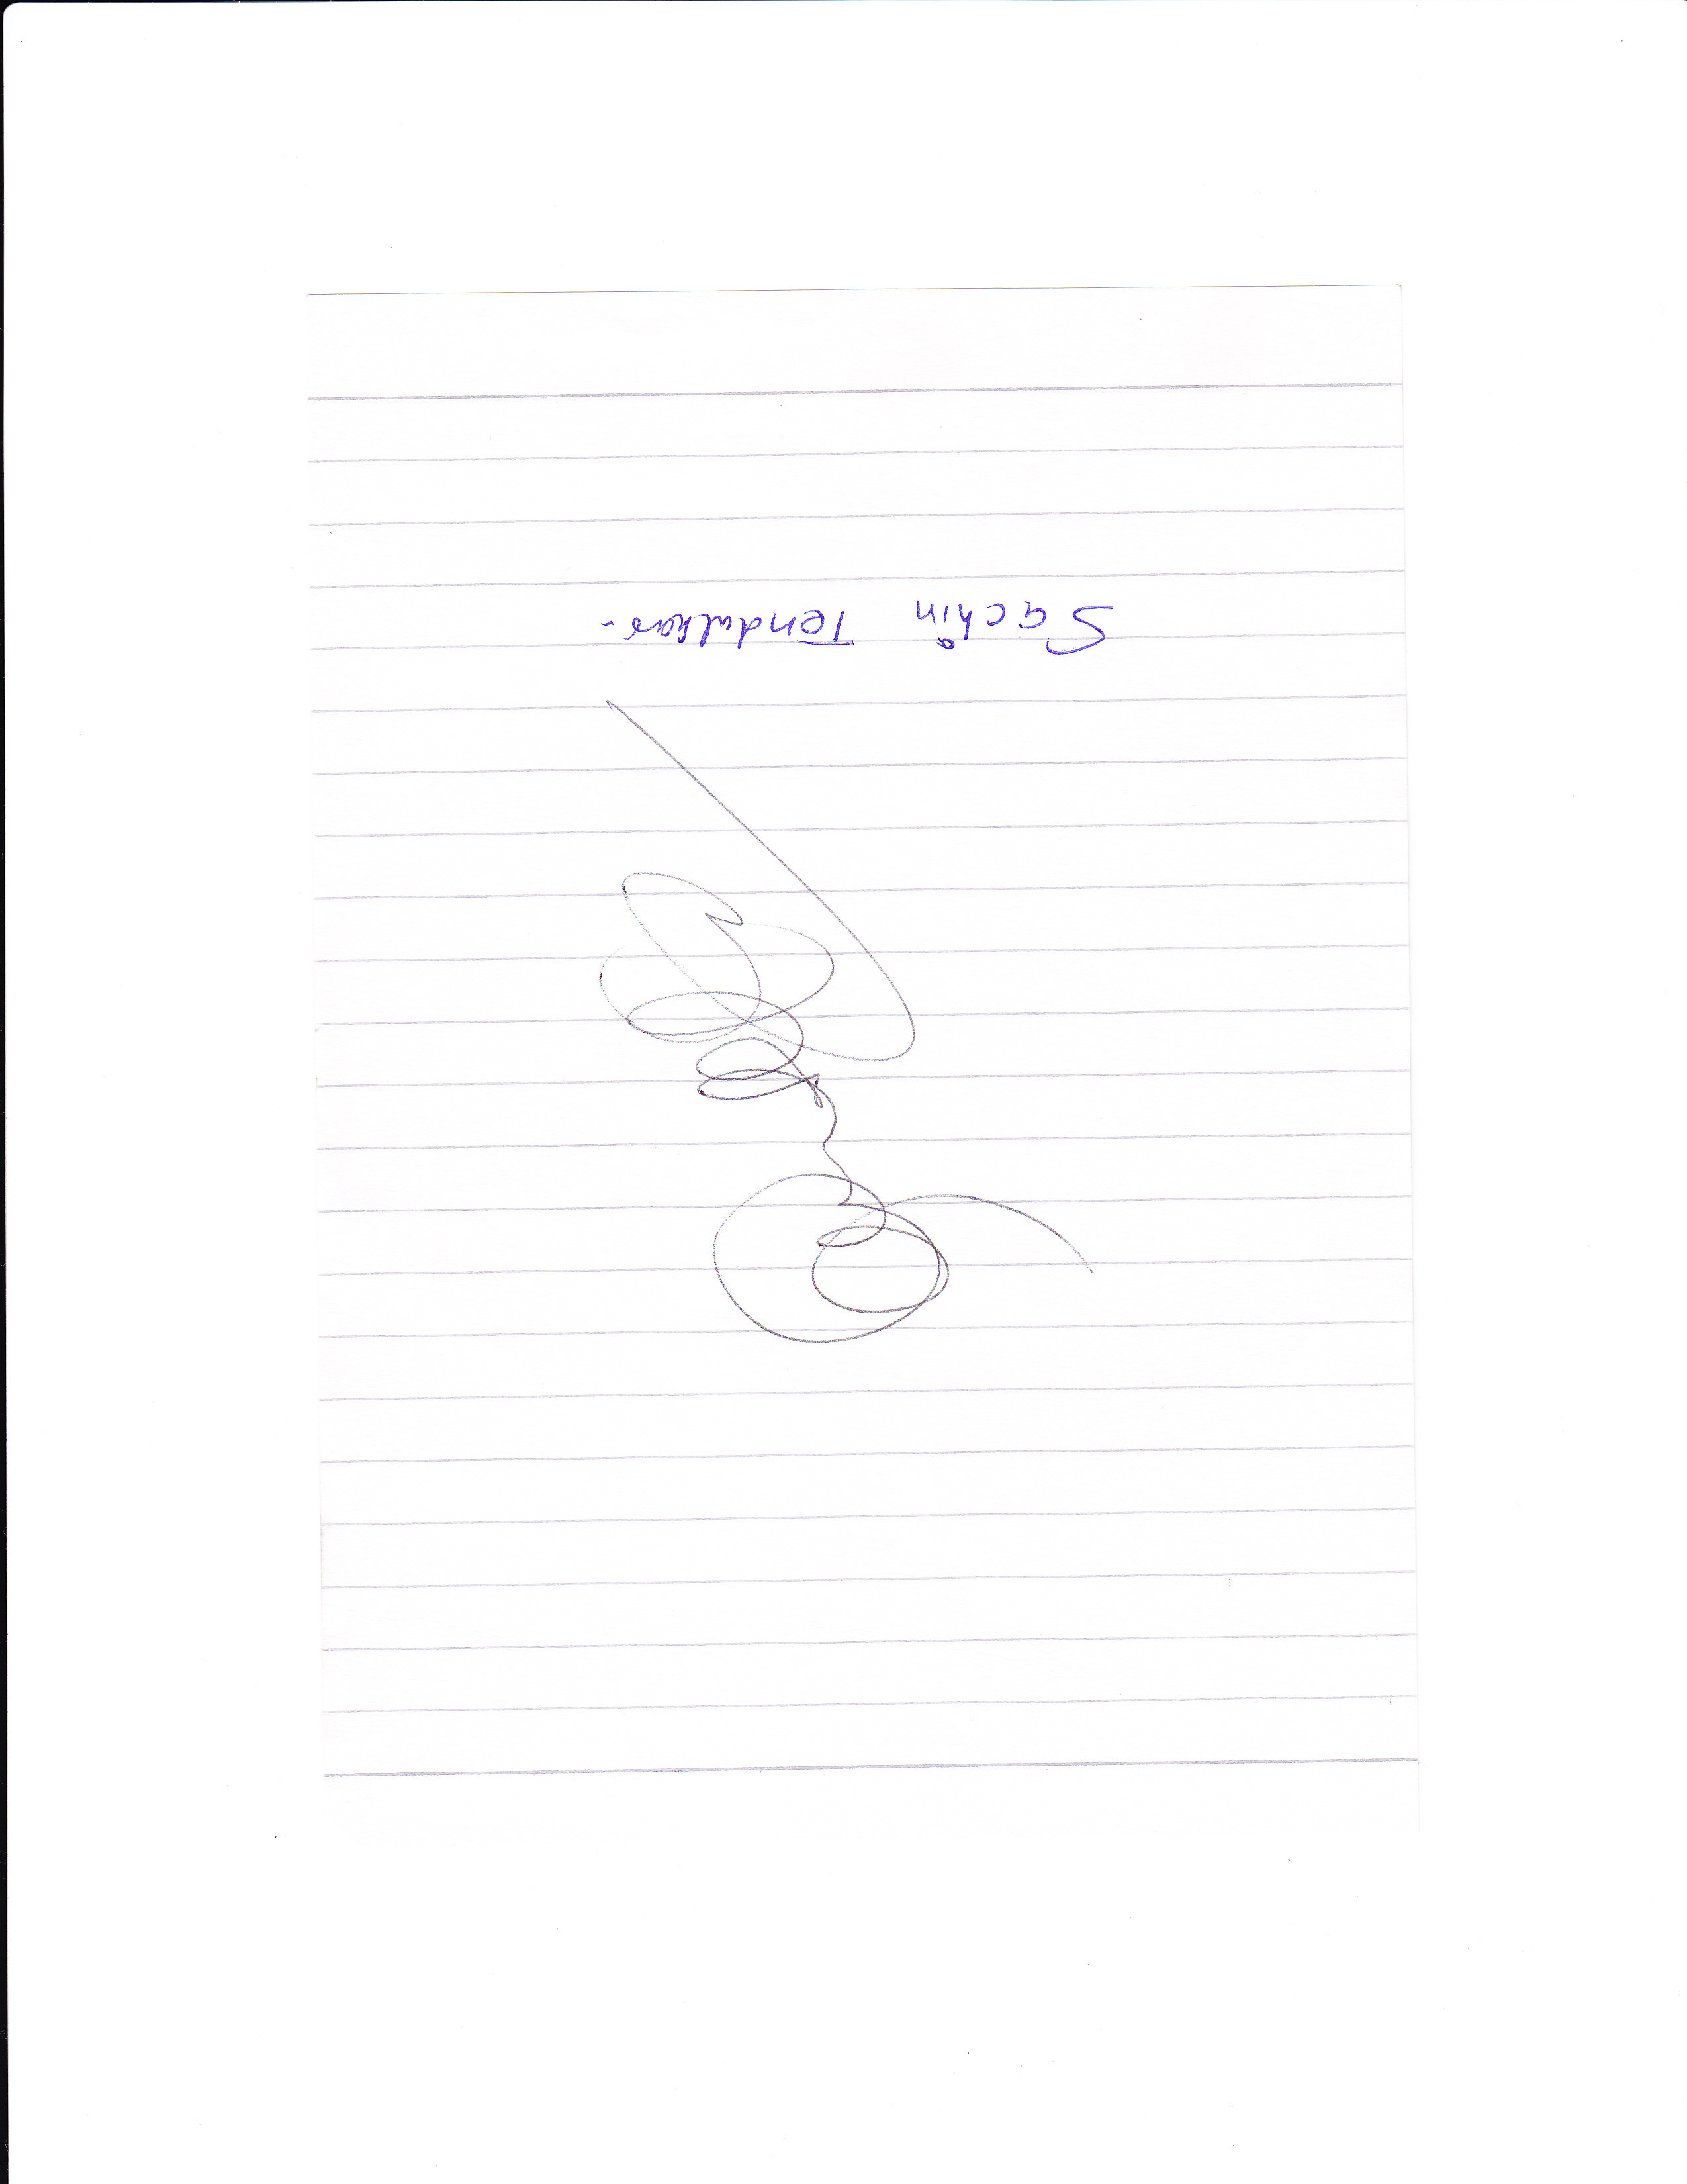 Sachin Tendulkar